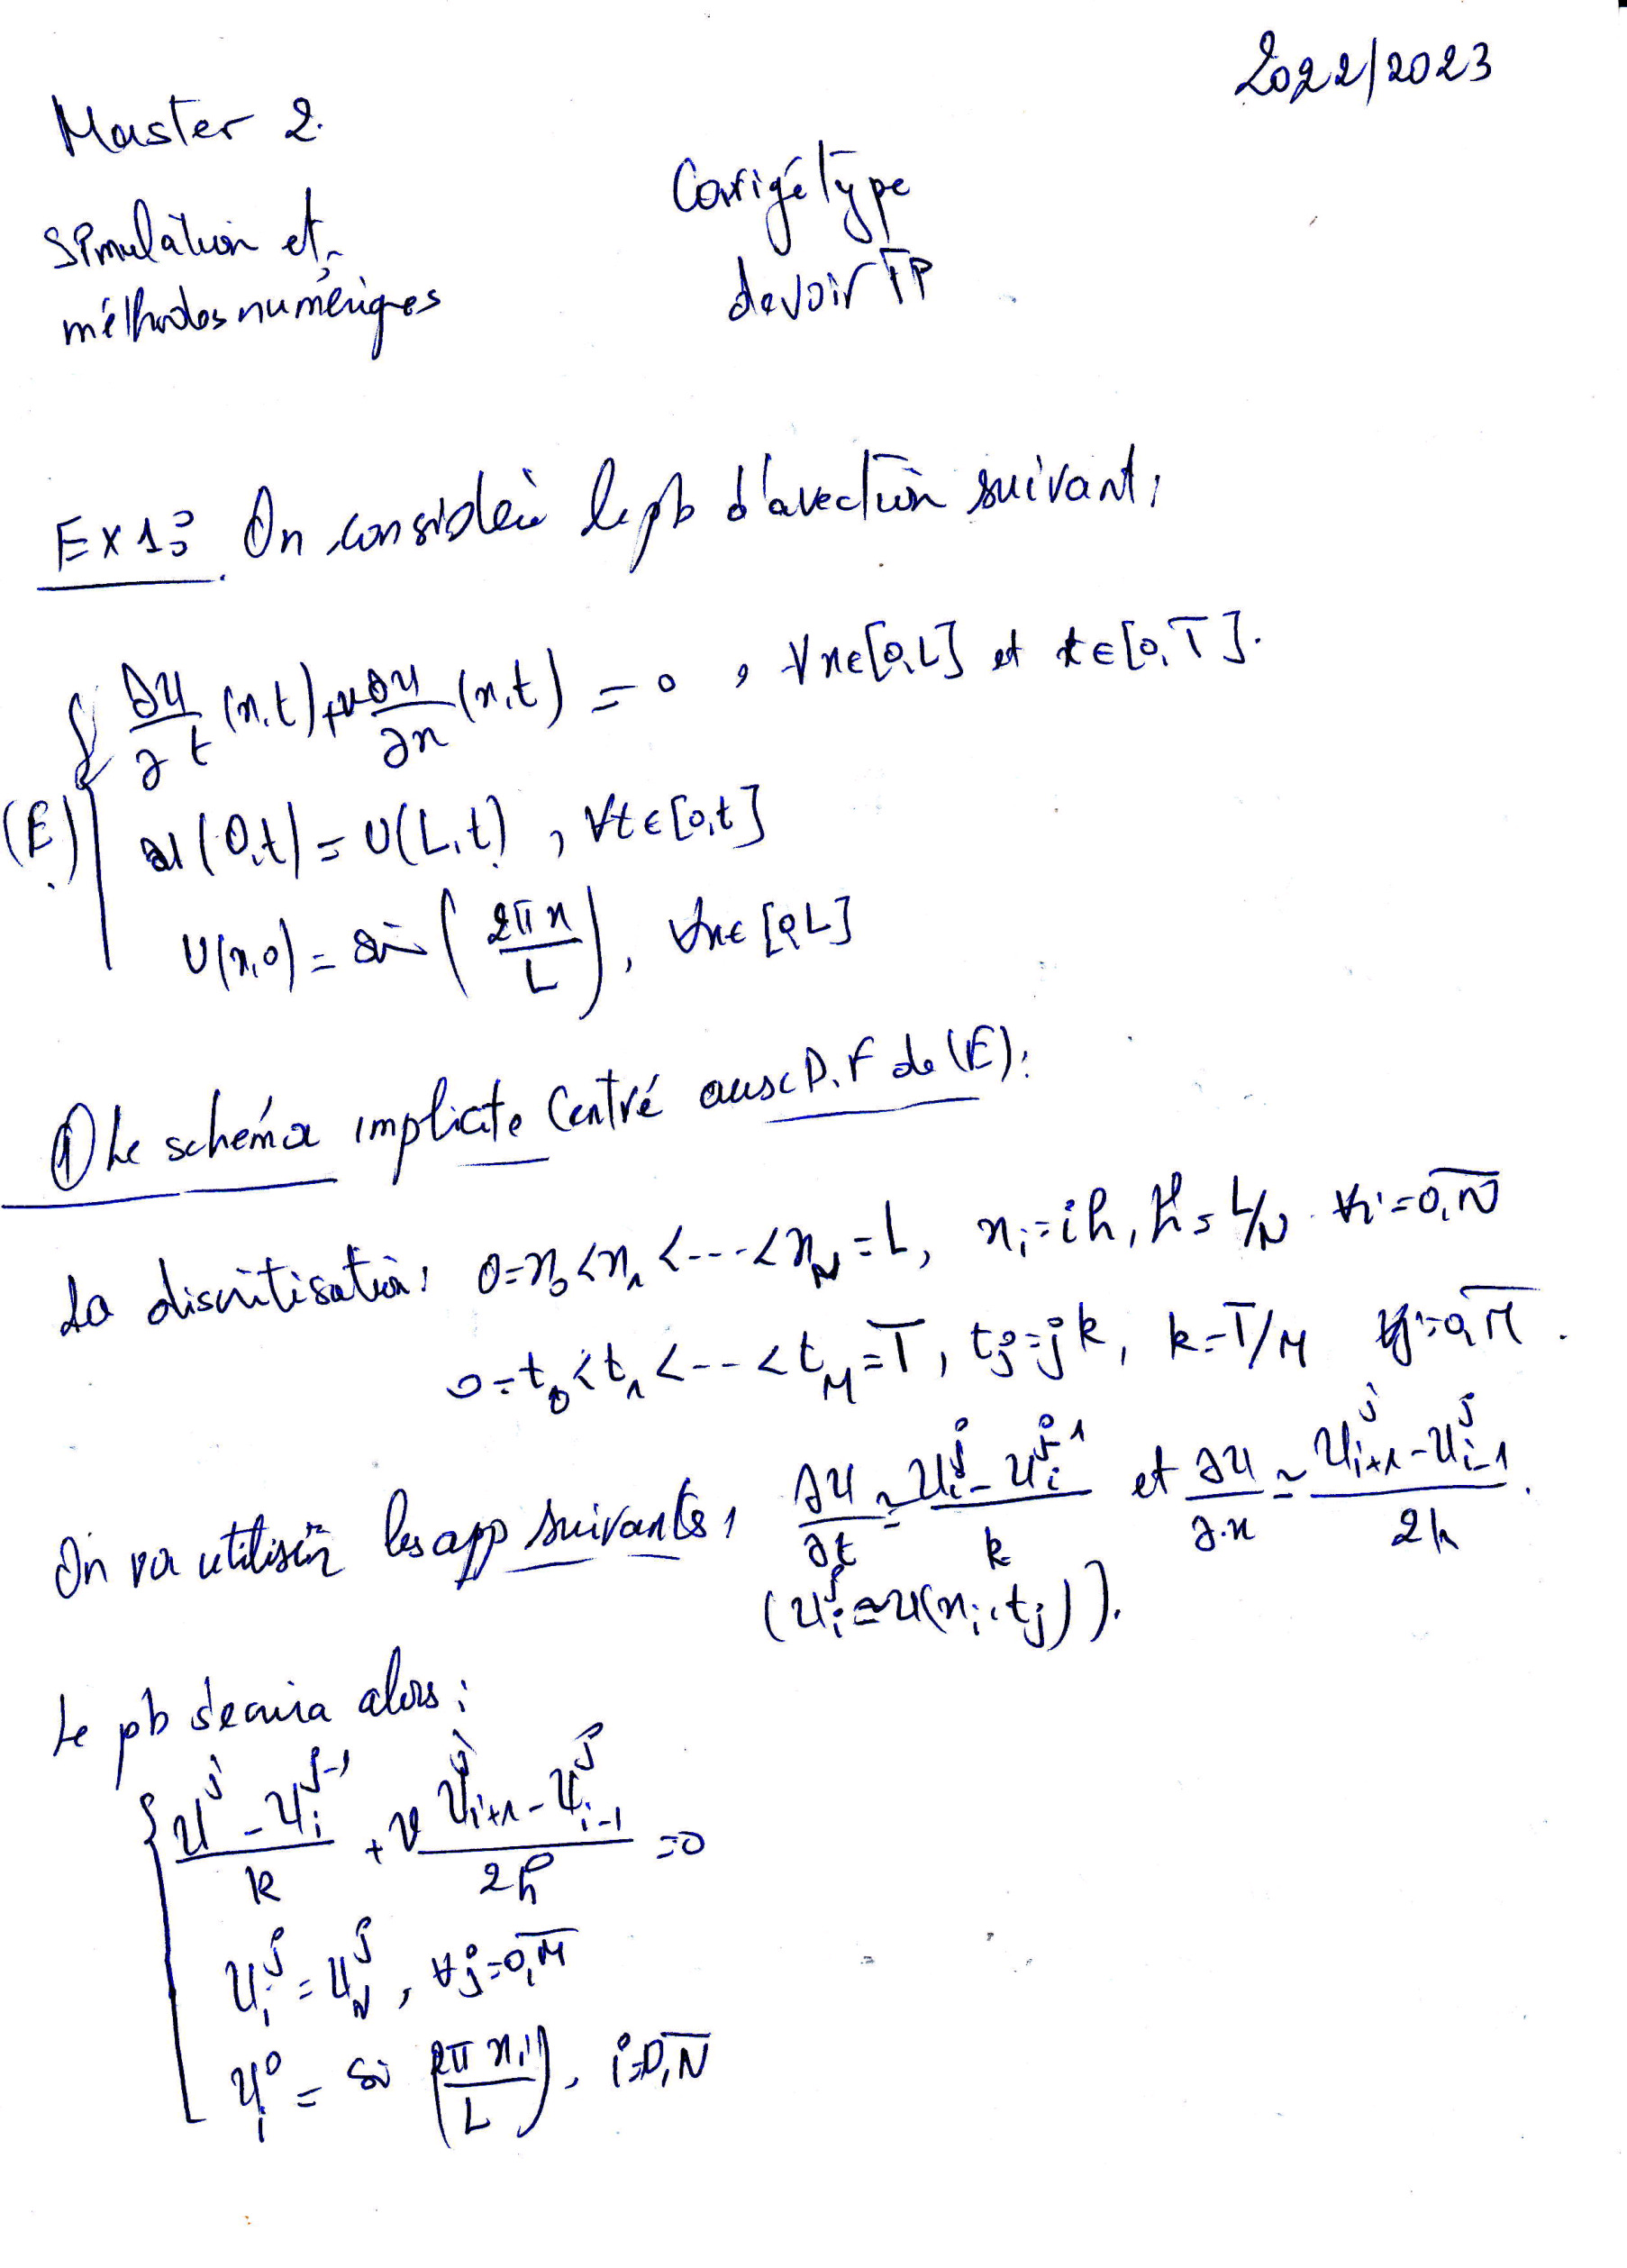 2022/2023
Master 2.
Corrigé type
Simulation et
devoir TP
méthodes numériques
Ex 1: On considère le pb d'avection suivant:
(E) { ∂u/∂t (x,t) + v ∂u/∂x (x,t) = 0, ∀x∈[0,L] et t∈[0,T].
u(0,t) = U(L,t), ∀t∈[0,t]
U(x,0) = sin(2πx/L), ∀x∈[0,L]
① Le schéma implicite Centré aux D.F de (E):
La discritisation: 0=x₀<x₁<---<x_N=L, x_i=ih, h=L/N ∀i=0,N
0=t₀<t₁<--<t_M=T, t_j=jk, k=T/M ∀j=0,M.
On va utiliser les app suivantes: ∂u/∂t ≃ (u_i^j - u_i^{j-1})/k et ∂u/∂x ≃ (u_{i+1}^j - u_{i-1}^j)/2h.
(u_i^j ≃ u(x_i, t_j)).
Le pb s'ecrira alors:
{ (u^j - u_i^{j-1})/k + v (u_{i+1}^j - u_{i-1}^j)/2h = 0
u_i^j = u_N^j, ∀j=0,M
u_i^0 = si (2πx_i/L), i=0,N